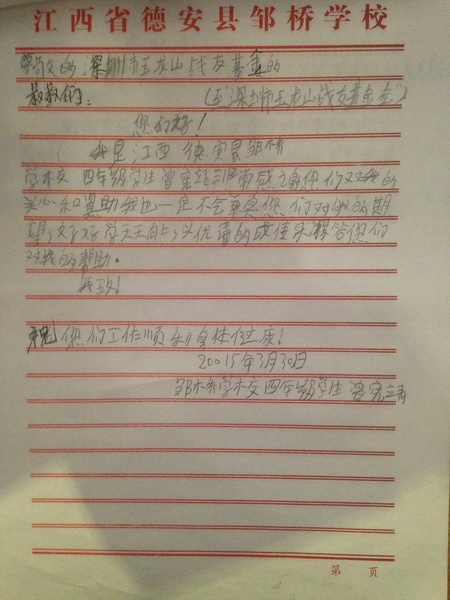 江西省德安县邹桥学校
尊敬的深圳市玉龙山战友基金的
叔叔们:(至深圳市玉龙山战友基金会)
您们好!
我是江西德安县邹桥
学校四年级学生曾 非常感谢您们对我的
关心和資助我也一定不会辜负您们对我的期
望,好好学天天向上,以优异的成绩来报答您们
对我的帮助。
此致!
祝您们工作顺利身体健康!
20015年3月30日
邹桥学校四年级学生曾
第 页